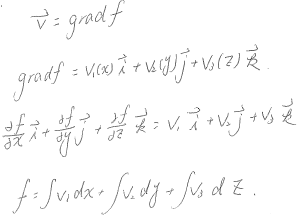 v⃗ = grad f
grad f = v₁(x) i⃗ + v₂(y) j⃗ + v₃(z) k⃗.
∂f/∂x i⃗ + ∂f/∂y j⃗ + ∂f/∂z k⃗ = v₁ i⃗ + v₂ j⃗ + v₃ k⃗
f = ∫v₁dx + ∫v₂dy + ∫v₃ dz.